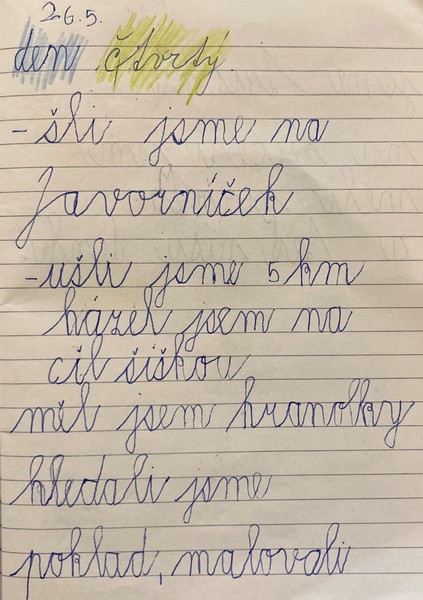 26.5.
den čtvrtý.
- šli jsme na
Javorníček
- ušli jsme 5 km
házel jsem na
cíl šiškou
měl jsem hranolky
hledali jsme
poklad, malovali